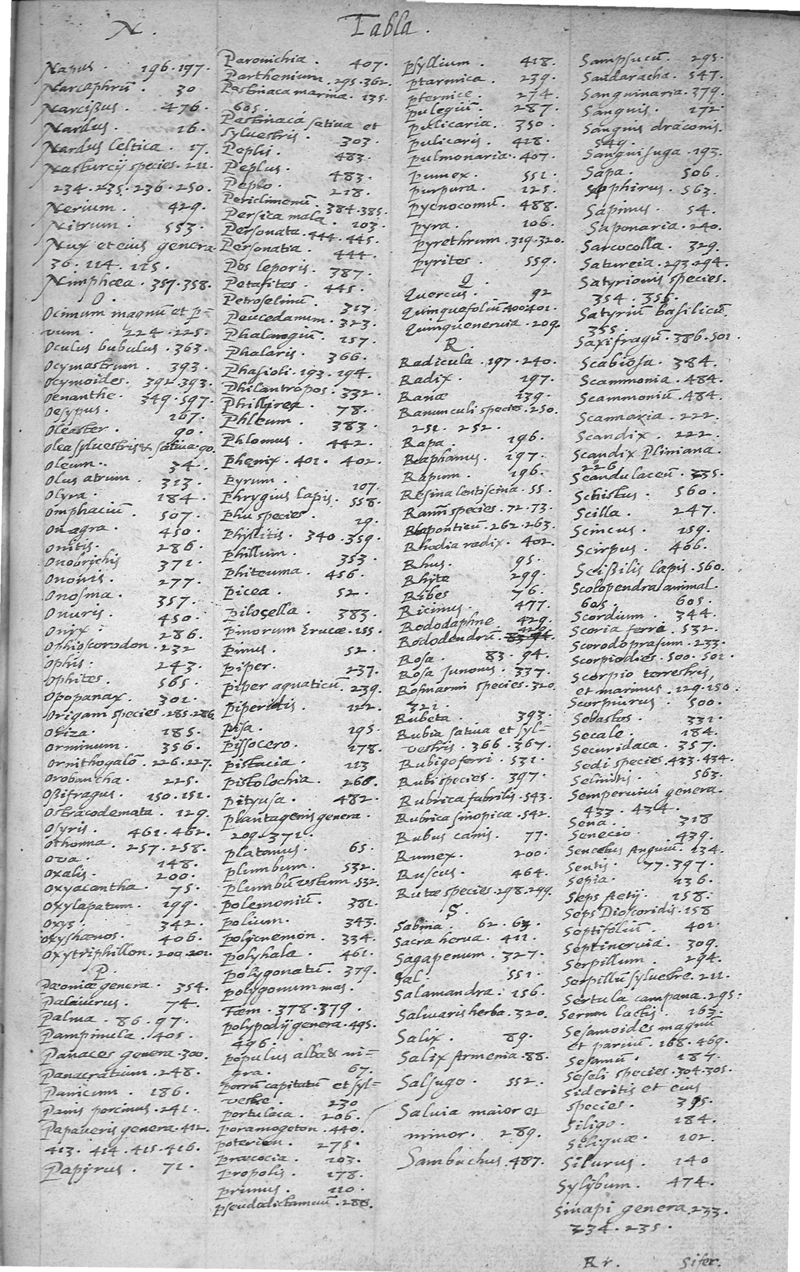 N. Tabla.
Napus. 196.197.
Narcaphtū 30
Narcißus. 476.
Nardus. 16.
Nardus Celtica. 17.
Nasturcij species. 211.
234.235.236.250.
Nerium. 429.
Nitrum. 553.
Nux et eius genera
36. 114. 115.
Nimphœa. 357.358.
O.
Ocimum magnū et p-
vum. 224.225.
Oculus bubulus. 363.
Ocymastrum. 393.
Ocymoides. 392.393.
Oenanthe. 349.597.
Oesypus. 167.
Oleaster. 90.
Olea sylvestris & sativa. 90.
Oleum. 34.
Olus atrum. 313.
Olyra. 184.
Omphaciū 507.
Onagra. 450.
Onitis. 286.
Onobrichis 371.
Ononis. 277.
Onosma. 357.
Onuris. 450.
Onyx. 286.
Ophioscorodon. 232
Ophis. 243.
Ophites. 565.
Opopanax. 301.
Origani species. 285.286.
Oriza. 185.
Orminum. 356.
Ornithogalō. 226.227.
Orobancha. 225.
Oßifragus. 150.151.
Ostracodemata. 129.
Osyris. 461.462.
Othonna. 257.258.
Ova. 148.
Oxalis. 200.
Oxyacantha. 75.
Oxylapatum. 199.
Oxys. 342.
Oxyshœnos. 406.
Oxytriphillon. 200.201.
P.
Pœoniæ genera. 354.
Palaiurus. 74.
Palma. 86.97.
Pampinula. 405.
Panaces genera. 300.
Panacratium. 248.
Panicum. 186.
Panis porcinus. 241.
Papaveris genera. 412.
413. 414. 415. 416.
Papyrus. 71.
Paronichia. 407.
Parthenium. 295.362.
Pastinaca marina. 135.
605.
Pastinaca sativa et
sylvestris. 303.
Peplis. 483.
Peplus. 483.
Peplo. 218.
Peticlimenū. 384.385.
Persica mala. 103.
Personata. 444.445.
Personatia. 444.
Pes leporis. 387.
Petasites. 445.
Petroselinū. 313.
Peucedanum. 323.
Phalangiū. 157.
Phalaris. 366.
Phasioli. 193.194.
Philantropos. 332.
Phillirea. 78.
Phleum. 383.
Phlomus. 442.
Phenix. 401. 402.
Pyrum. 107.
Phrygius lapis. 558.
Phu species. 19.
Phillitis. 340.359.
Phillum. 353.
Phiteuma. 456.
Picea. 52.
Pilocella. 383.
Pinorum Erucæ. 155.
Pinus. 52.
Piper. 237.
Piper aquaticū. 239.
Piperitis. 122.
Pisa. 195.
Pissocero. 178.
Pistacia. 113
Pistolochia. 260.
Pityusa. 482.
Plantagenis genera.
209. 371.
Platanus. 65.
Plumbum. 532.
Plumbū ustum. 532.
Polemoniū. 381.
Polium. 343.
Policnemon. 334.
Polyhala. 461.
Polygonatū. 379.
Polygonum mas.
Fæm. 378.379.
Polypodij genera. 495.
496.
Populus alba & ni=
gra. 67.
Porrū capitatū et syl-
vestre. 230
Portulaca. 206.
Poramogeton. 440.
Poterion. 275.
Præcocia. 103.
Propolis. 178.
Prunus. 110.
Pseudodictamnū. 288.
Psyllium. 418.
Ptarmica. 239.
Pternice. 274.
Pulegiū. 287.
Pullicaria. 350.
Pulicaris. 418.
Pulmonaria. 407.
Pumex. 551.
Purpura. 125.
Pycnocomū. 488.
Pyra. 106.
Pyrethrum. 319.320.
Pyrites. 559.
Q.
Quercus. 92
Quinquefoliū. 400.401.
Quinquenervia. 209.
R.
Radicula. 197.240.
Radix. 197.
Ranæ 139.
Ranunculi species. 250.
251. 252.
Rapa. 196.
Raphanus. 197.
Rapum. 196.
Resina lentiscina. 55.
Ramñ species. 72.73.
Rhaponticū. 262.263.
Rhodia radix. 402.
Rhus. 95.
Rhita 299.
Ribes 76.
Ricinus. 477.
Rododaphne. 429.
Rododendrū. 429.
Rosa. 83. 94.
Rosa Junonis. 337.
Rosmarini species. 320.
321.
Rubeta. 393.
Rubia sativa et syl-
vestris. 366.367.
Rubigo ferri. 531.
Rubi species. 397.
Rubrica fabrilis. 543.
Rubrica sinopica. 542.
Rubus canis. 77.
Rumex. 200.
Ruscus. 464.
Rutæ species. 298.299.
S.
Sabina. 62. 64.
Sacra herva. 411.
Sagapenum. 327.
Sal. 551.
Salamandra. 156.
Salivaris herba. 320.
Salix. 89.
Salix Armenia. 88.
Salsugo. 552.
Salvia maior et
minor. 289.
Sambuchus. 487.
Sampsucū. 295.
Sandaracha. 547.
Sanguinaria. 379.
Sanguis. 172
Sanguis draconis.
549.
Sanguisuga. 193.
Sapa. 506.
Saphirus. 563.
Sapinus. 54.
Saponaria. 240.
Sarcocolla. 329.
Satureia. 293.294.
Satyrionis species.
354. 355.
Satyriū basilicū
355.
Saxifragū. 386.501.
Scabiosa. 384.
Scammonia. 484.
Scammoniū. 484.
Scanaria. 222.
Scandix. 222.
Scandix Pliniana.
226
Scandulaceū. 335.
Schistus. 560.
Scilla. 247.
Scincus. 159.
Scirpus. 406.
Scißilis lapis. 560.
Scolopendra animal.
605. 605.
Scordium. 344.
Scoria ferri. 532.
Scorodoprasum. 233.
Scorpiodies. 500. 501.
Scorpio terrestris,
et marinus. 129.150.
Scorpiurus. 500.
Sebastos. 331.
Secale. 184.
Securidaca. 357.
Sedi species. 433.434.
Selinitis. 563.
Sempervivi genera.
433. 434.
Sena. 318
Senecio. 439.
Senectus Anguiū. 134.
Sentis. 77.397.
Sepia. 136.
Seps Aetij. 158.
Seps Dioscoridis. 158
Septifoliū. 401.
Septinervia. 309.
Serpillum. 294.
Serpillū sylvestre. 211.
Sertula campana. 295.
Serum lactis. 163.
Sesamoides magnū
et parvū. 168. 469.
Sesamū. 187.
Seseli species. 304.305.
Sideritis et eius
species. 395.
Siligo. 184.
Siliquæ. 102.
Silurus. 140
Sylibum. 474.
Sinapi genera. 233.
234. 235.
Rr. Sifer.